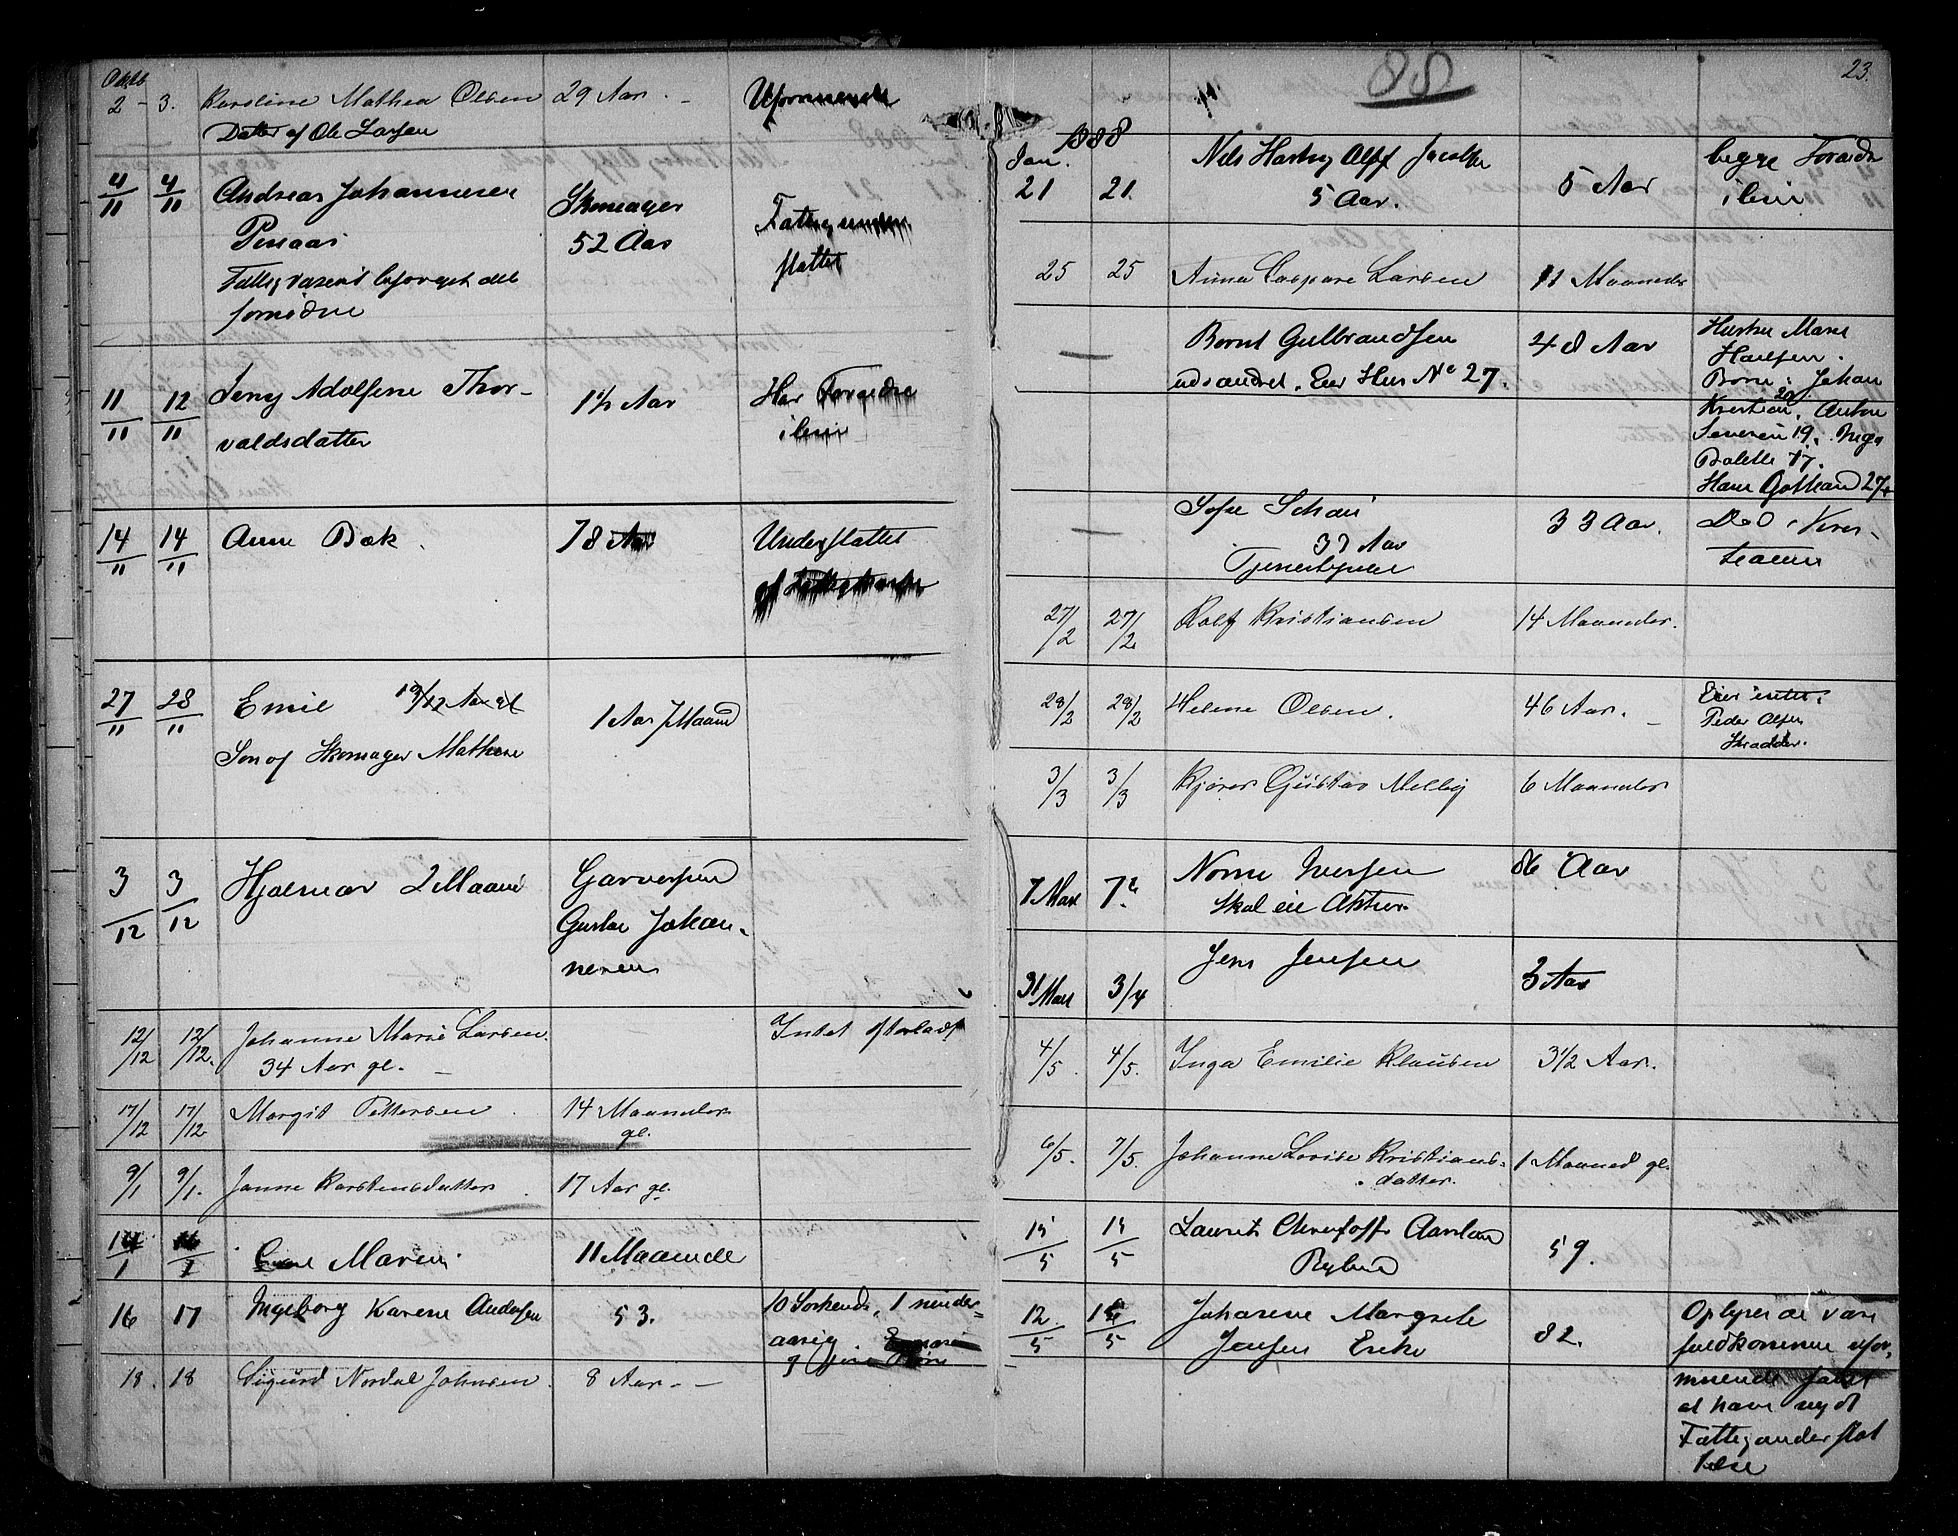 Oktb
2 - 3. Karoline Mathea Olsen 29 Aar. - Uformuende
Datter af Ole Larsen
4/11 4/11 Andreas Johannesen Skomager
52 Aar
Fattigvæsenet besørget det
fornødne
11/11 12/11 Jeny Adolfine Thor- 1 1/2 Aar Har Forældre
valdsdatter ilive
14/11 14/11 Anne Bæk. 78 Aar Understøttet
af
27/11 28/11 Emil 19/12 Aar gl 1 Aar 7 Maaned
Søn af Skomager Mathisen
3/12 3/12 Hjalmar 2 Maaned Garversvend
Gustav Johan-
nesen
12/12 12/12. Johanne Marie Larsen. Intet efterladt
34 Aar gl. -
17/12 17/12 Margit Pettersen 14 Maaneder
gl.
9/1 9/1. Janne Karstensdatter. 17 Aar gl.
14/1 Marie 11 Maaneder
16 17 Ingeborg Karene Andersen 53. 10 Søskende, 1 minder-
aarig
18. 18 Sigurd Nordal Johnsen. 8 Aar. -
88
23.
1888
Jan.
21 21. Nils Alff Jacobsen 5 Aar begge Forældre
5 Aar. ilive
25 25 Anna Caspare Larsen 11 Maaneder
— Bernt Gulbrandsen 48 Aar Hustru Maren
Eier Hus No 27. Hansen.
Børn: Johan
20
Kristian, Anton
Severin 19, Inga
17.
Hans 27 4
— Sofie 33 Aar. Død i Kris-
33 Aar tiania
Tjenestepige
27/2 27/2 Rolf Kristiansen 14 Maaneder.
28/2 28/2 Helene Olsen. 46 Aar. - Eier intet.
Peder Olsen
Skrædder.
3/3 3/3 Gustav Melby 6 Maaneder
7 Mar 7de Iversen 86 Aar
Skal eie Aktier.
31 Mar 3/4 Jens Jensen 3 Aar
4/5. 4/5. Inga Emilie Klausen 3 1/2 Aar.
6/5. 7/5. Johanne Lovise Kristians- 1 Maaned gl.
datter.
15/5 15/5 Laurits Christoff 59.
12/5 Johanne Margrete 82. Oplyses at være
Jensen Enke fuldkommen ufor-
muende samt
at have nydt
Fattigunderstøt
telse